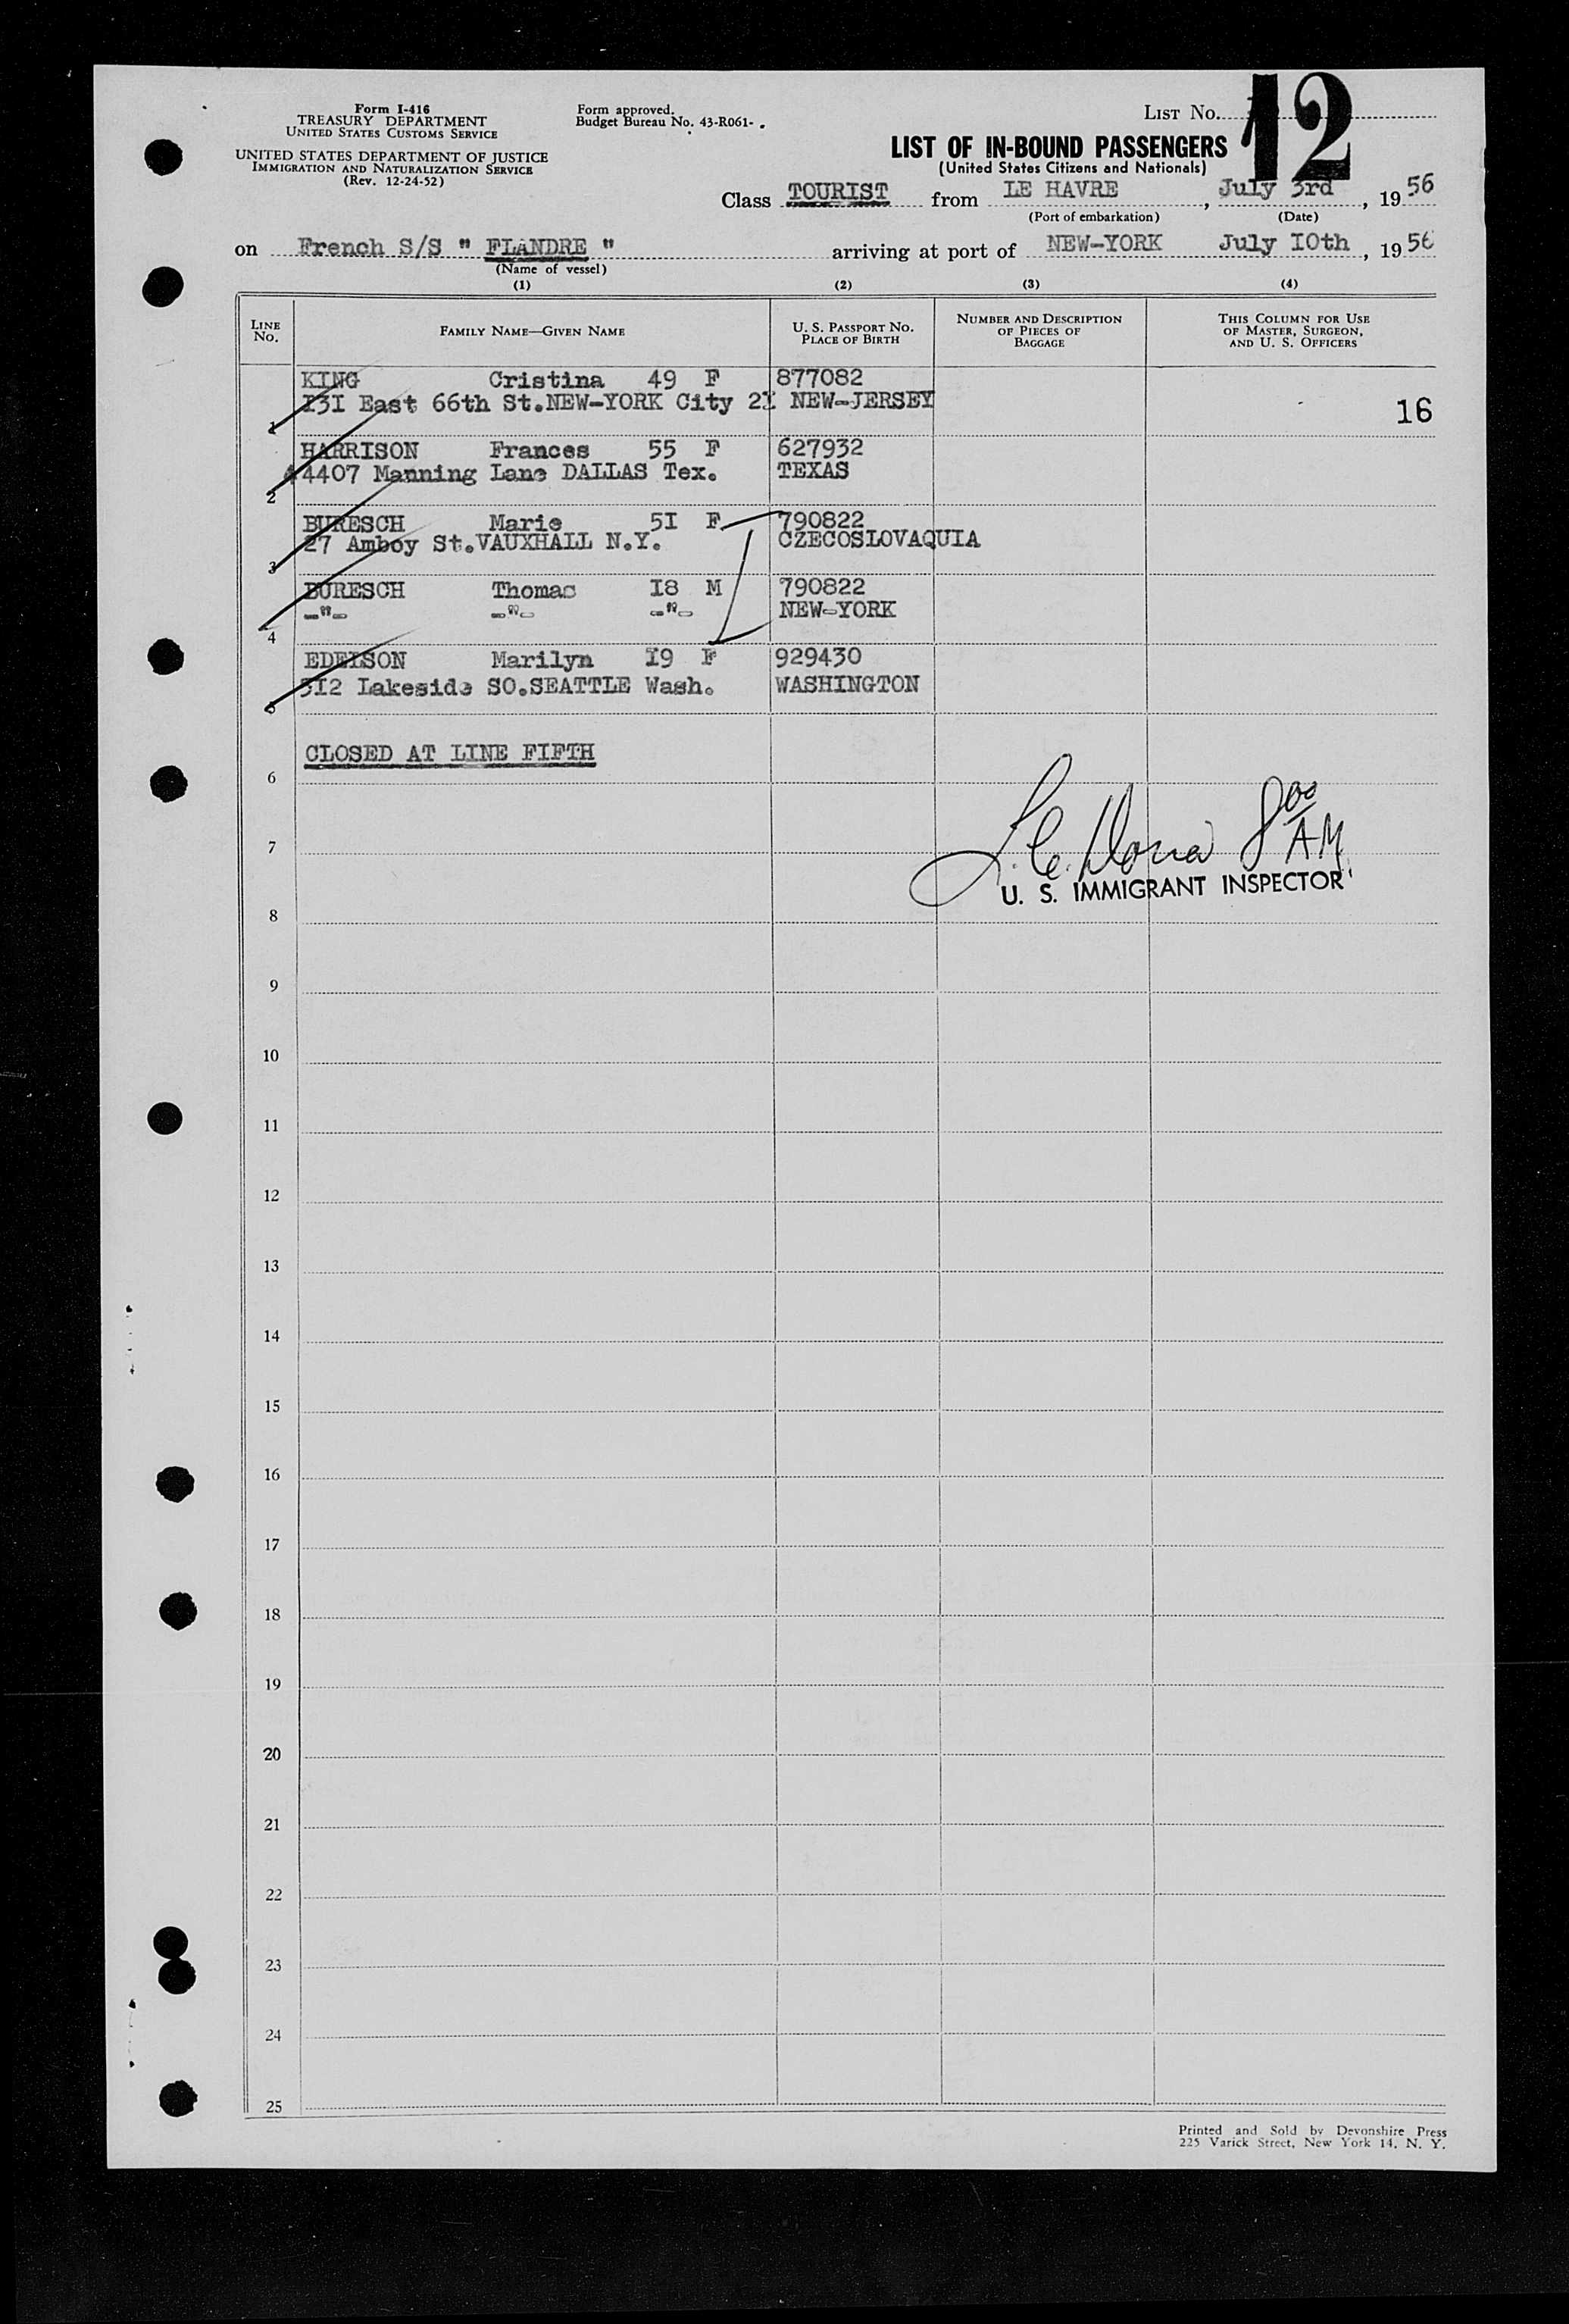 Form I-416
TREASURY DEPARTMENT
UNITED STATES CUSTOMS SERVICE
UNITED STATES DEPARTMENT OF JUSTICE
IMMIGRATION AND NATURALIZATION SERVICE
(Rev. 12-24-52)
Form approved.
Budget Bureau No. 43-R061- .
LIST No. 12
LIST OF IN-BOUND PASSENGERS
(United States Citizens and Nationals)
Class TOURIST from LE HAVRE, July 3rd, 1956
(Port of embarkation) (Date)
on French S/S " FLANDRE " arriving at port of NEW-YORK July I0th, 1956
(Name of vessel)
(1) (2) (3) (4)
LINE No. FAMILY NAME—GIVEN NAME U. S. PASSPORT No. PLACE OF BIRTH NUMBER AND DESCRIPTION OF PIECES OF BAGGAGE THIS COLUMN FOR USE OF MASTER, SURGEON, AND U. S. OFFICERS
KING Cristina 49 F 877082
I3I East 66th St.NEW-YORK City 2I NEW-JERSEY 16
1
HARRISON Frances 55 F 627932
4407 Manning Lane DALLAS Tex. TEXAS
2
BURESCH Marie 5I F 790822
27 Amboy St.VAUXHALL N.Y. CZECOSLOVAQUIA
3
BURESCH Thomas I8 M 790822
-"- -"- -"- NEW-YORK
4
EDELSON Marilyn I9 F 929430
5I2 Lakeside SO.SEATTLE Wash. WASHINGTON
5
CLOSED AT LINE FIFTH
6
7
8 00 AM
U. S. IMMIGRANT INSPECTOR
8
9
10
11
12
13
14
15
16
17
18
19
20
21
22
23
24
25
Printed and Sold by Devonshire Press
225 Varick Street, New York 14, N. Y.